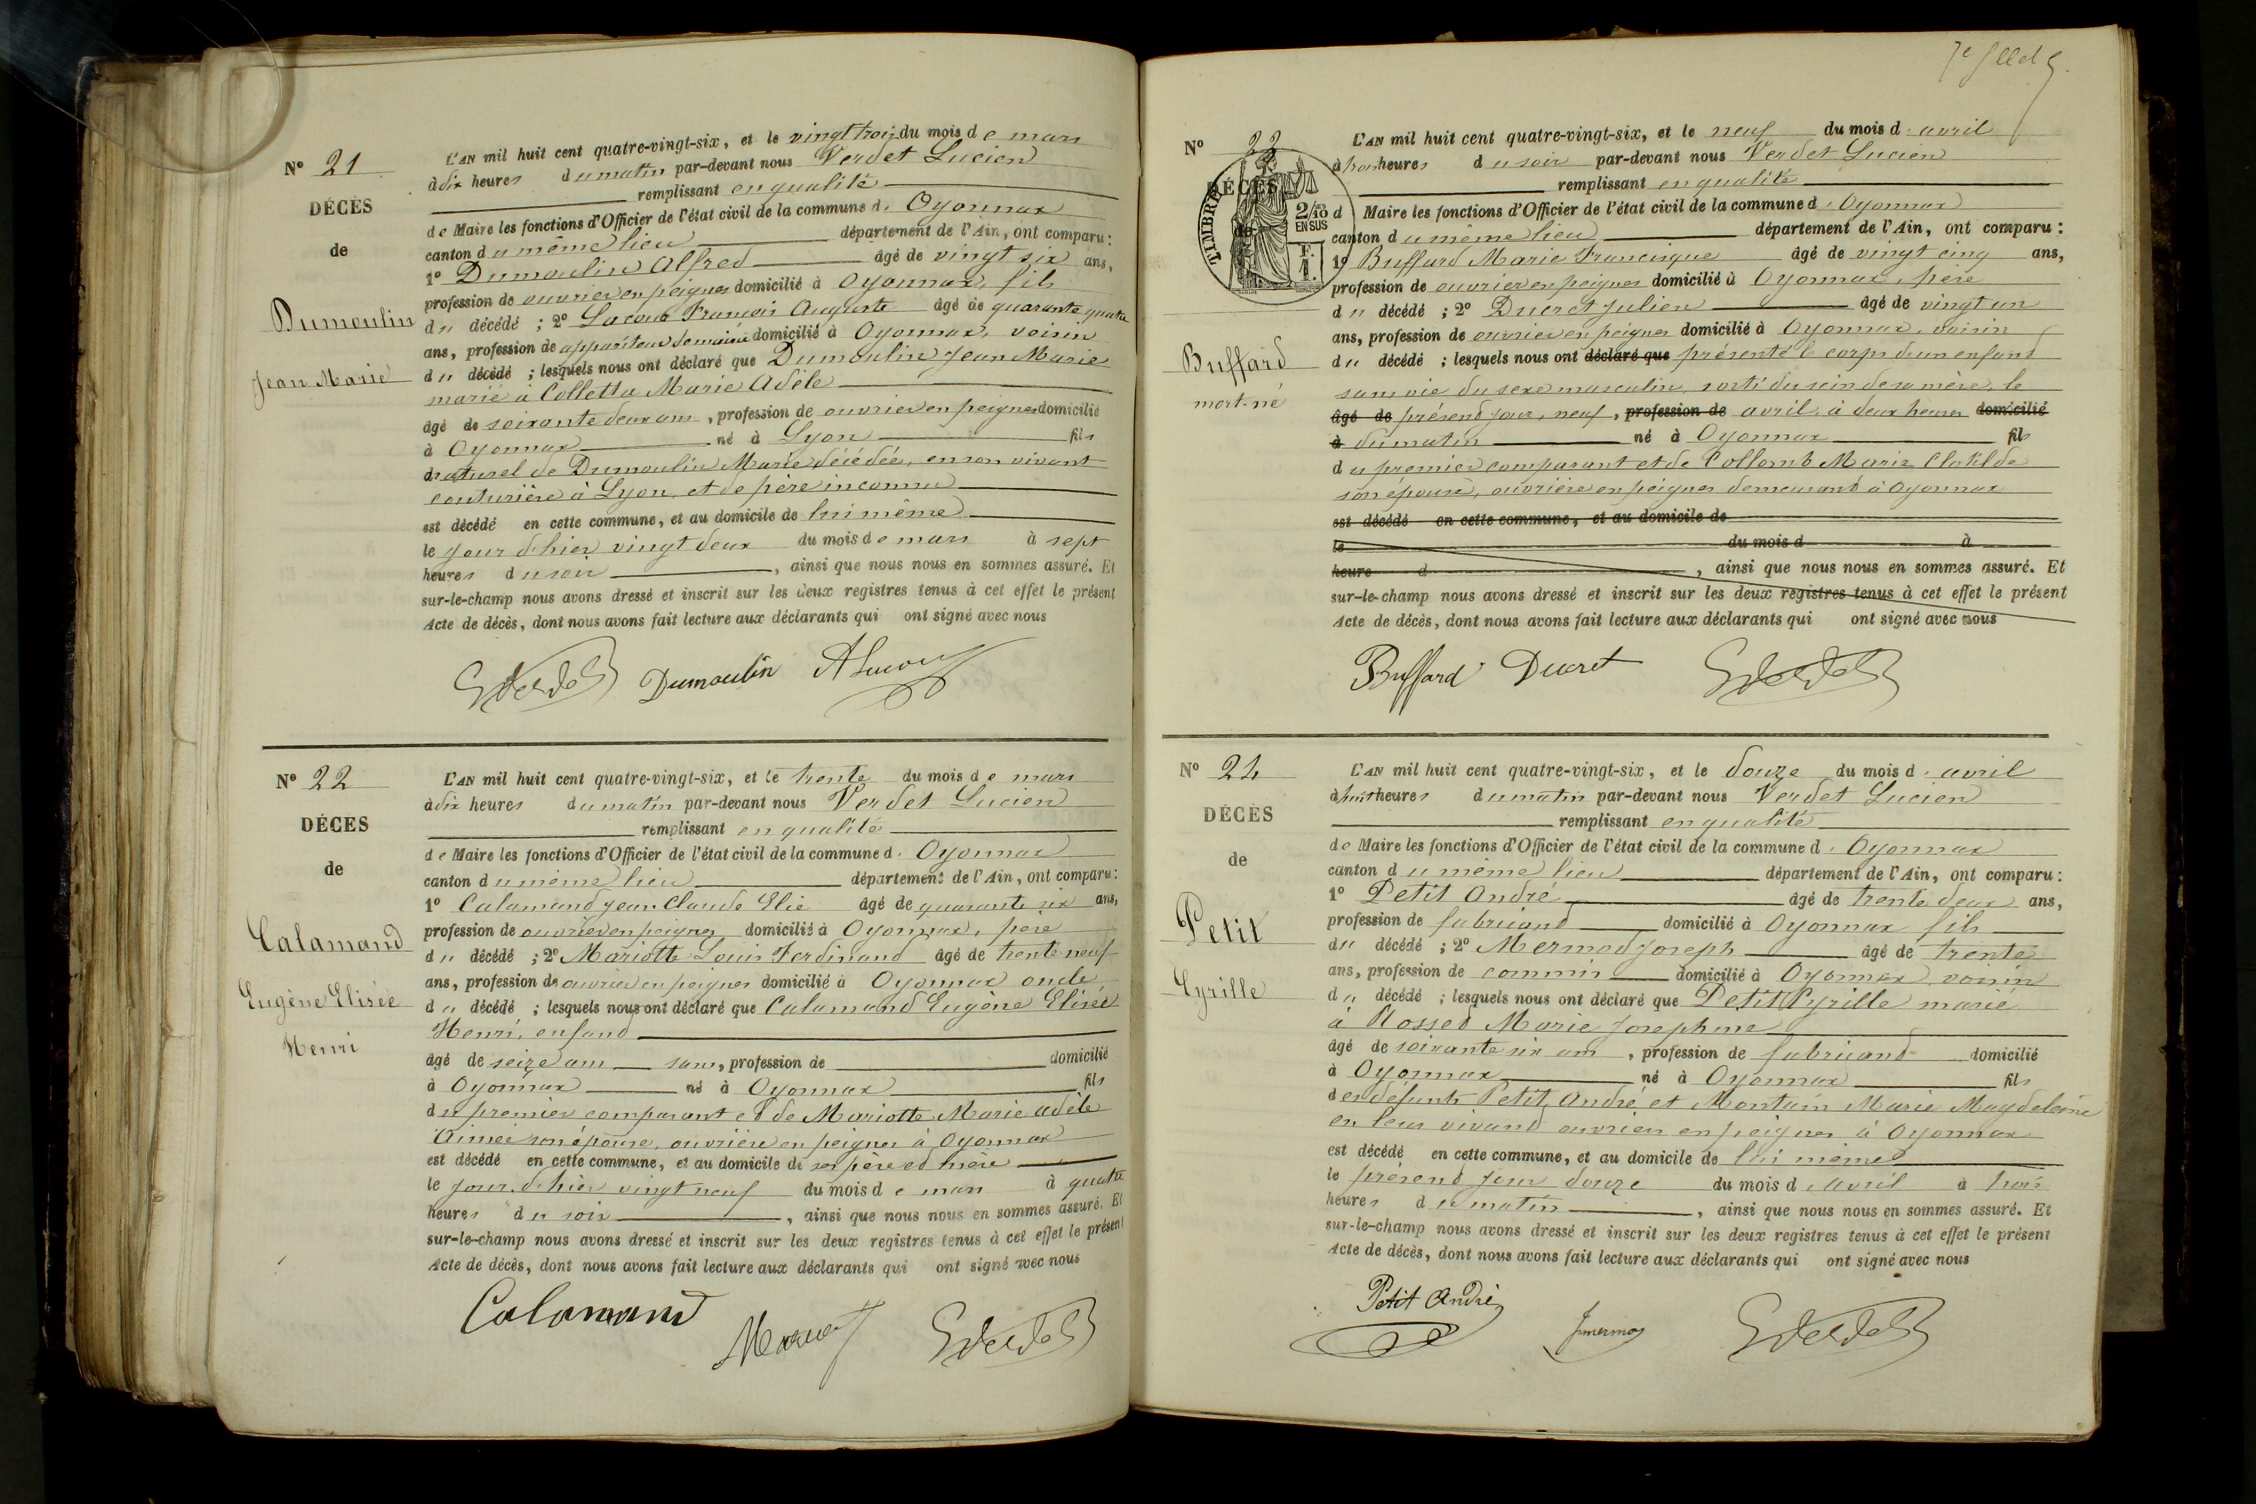 N° 21
DÉCÈS
de
Dumoulin
Jean Marie
L'AN mil huit cent quatre-vingt-six, et le vingt trois du mois de mars
à dix heures du matin par-devant nous Verdet Lucien
remplissant en qualité
de Maire les fonctions d'Officier de l'état civil de la commune d'Oyonnax
canton du même lieu département de l'Ain, ont comparu :
1° Dumoulin Alfred âgé de vingt six ans,
profession de ouvrier en peignes domicilié à Oyonnax, fils
du décédé ; 2° Lacour François Auguste âgé de quarante quatre
ans, profession de appariteur de mairie domicilié à Oyonnax, voisin
du décédé ; lesquels nous ont déclaré que Dumoulin Jean Marie
marié à Colletta Marie Adèle
âgé de soixante deux ans, profession de ouvrier en peignes domicilié
à Oyonnax né à Lyon fils
naturel de Dumoulin Marie, décédée, en son vivant
couturière à Lyon, et de père inconnu
est décédé en cette commune, et au domicile de lui même
le jour d'hier vingt deux du mois de mars à sept
heures du soir, ainsi que nous nous en sommes assuré. Et
sur-le-champ nous avons dressé et inscrit sur les deux registres tenus à cet effet le présent
Acte de décès, dont nous avons fait lecture aux déclarants qui ont signé avec nous
Dumoulin
N° 22
DÉCES
de
Calamand
Eugène Elisée
Henri
L'AN mil huit cent quatre-vingt-six, et le trente du mois de mars
à dix heures du matin par-devant nous Verdet Lucien
remplissant en qualité
de Maire les fonctions d'Officier de l'état civil de la commune d'Oyonnax
canton du même lieu département de l'Ain, ont comparu :
1° Calamand Jean Claude Elie âgé de quarante six ans,
profession de ouvrier en peignes domicilié à Oyonnax, père
du décédé ; 2° Mariotte Louis Ferdinand âgé de trente neuf
ans, profession de ouvrier en peignes domicilié à Oyonnax oncle
du décédé ; lesquels nous ont déclaré que Calamand Eugène Elisée
Henri, enfant
âgé de seize ans sans, profession de domicilié
à Oyonnax né à Oyonnax fils
du premier comparant et de Mariotte Marie adèle
Aimée son épouse, ouvrière en peignes à Oyonnax
est décédé en cette commune, et au domicile de ses père et mère
le jour d'hier vingt neuf du mois de mars à quatre
heures du soir, ainsi que nous nous en sommes assuré. Et
sur-le-champ nous avons dressé et inscrit sur les deux registres tenus à cet effet le présent
Acte de décès, dont nous avons fait lecture aux déclarants qui ont signé avec nous
Calamand
N° 23
DÉCÈS
de
TIMBRE
2/10
EN SUS
Buffard
mort-né
L'AN mil huit cent quatre-vingt-six, et le neuf du mois d'avril
à trois heures du soir par-devant nous Verdet Lucien
remplissant en qualité
d Maire les fonctions d'Officier de l'état civil de la commune d'Oyonnax
canton du même lieu département de l'Ain, ont comparu :
1° Buffard Marie Francisque âgé de vingt cinq ans,
profession de ouvrier en peignes domicilié à Oyonnax, père
du décédé ; 2° Ducret Julien âgé de vingt un
ans, profession de ouvrier en peignes domicilié à Oyonnax, voisin
du décédé ; lesquels nous ont déclaré que présenté le corps d'un enfant
sans vie du sexe masculin, sorti du sein de sa mère, le
âgé de présent jour, neuf, profession de avril, à deux heures domicilié
à du matin né à Oyonnax fils
du premier comparant et de Collomb Marie Clotilde
son épouse, ouvrière en peignes demeurant à Oyonnax
est décédé en cette commune, et au domicile de
le du mois d à
heure d, ainsi que nous nous en sommes assuré. Et
sur-le-champ nous avons dressé et inscrit sur les deux registres tenus à cet effet le présent
Acte de décès, dont nous avons fait lecture aux déclarants qui ont signé avec nous
Buffard Ducret
N° 24
DÉCÈS
de
Petit
Cyrille
L'AN mil huit cent quatre-vingt-six, et le douze du mois d'avril
à huit heures du matin par-devant nous Verdet Lucien
remplissant en qualité
de Maire les fonctions d'Officier de l'état civil de la commune d'Oyonnax
canton du même lieu département de l'Ain, ont comparu :
1° Petit André âgé de trente deux ans,
profession de fabricant domicilié à Oyonnax fils
du décédé ; 2° Mermod Joseph âgé de trente
ans, profession de commis domicilié à Oyonnax voisin
du décédé ; lesquels nous ont déclaré que Petit Cyrille marié
à Rosset Marie Josephine
âgé de soixante six ans, profession de fabricant domicilié
à Oyonnax né à Oyonnax fils
des défunts Petit, André et Montain Marie Magdeleine
en leur vivant ouvriers en peignes à Oyonnax
est décédé en cette commune, et au domicile de lui même
le présent jour douze du mois d'avril à trois
heures du matin, ainsi que nous nous en sommes assuré. Et
sur-le-champ nous avons dressé et inscrit sur les deux registres tenus à cet effet le présent
Acte de décès, dont nous avons fait lecture aux déclarants qui ont signé avec nous
Petit André